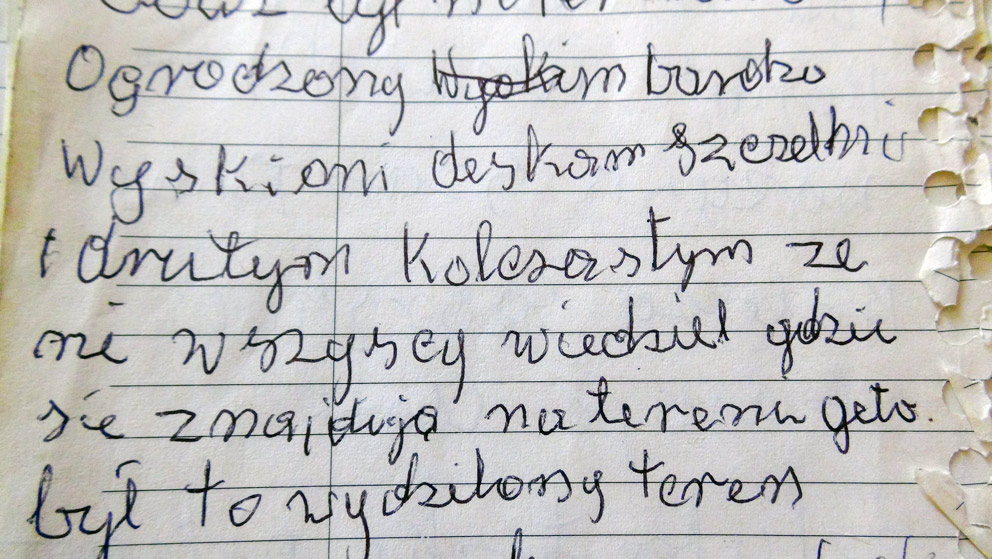 Ogrodzony bardzo
Wyskieni deskam szczelni
i drutym Kolczastym ze
nie wszyscy wiedziel gdzie
sie znajduja na tereni geto.
był to wydzielony teren